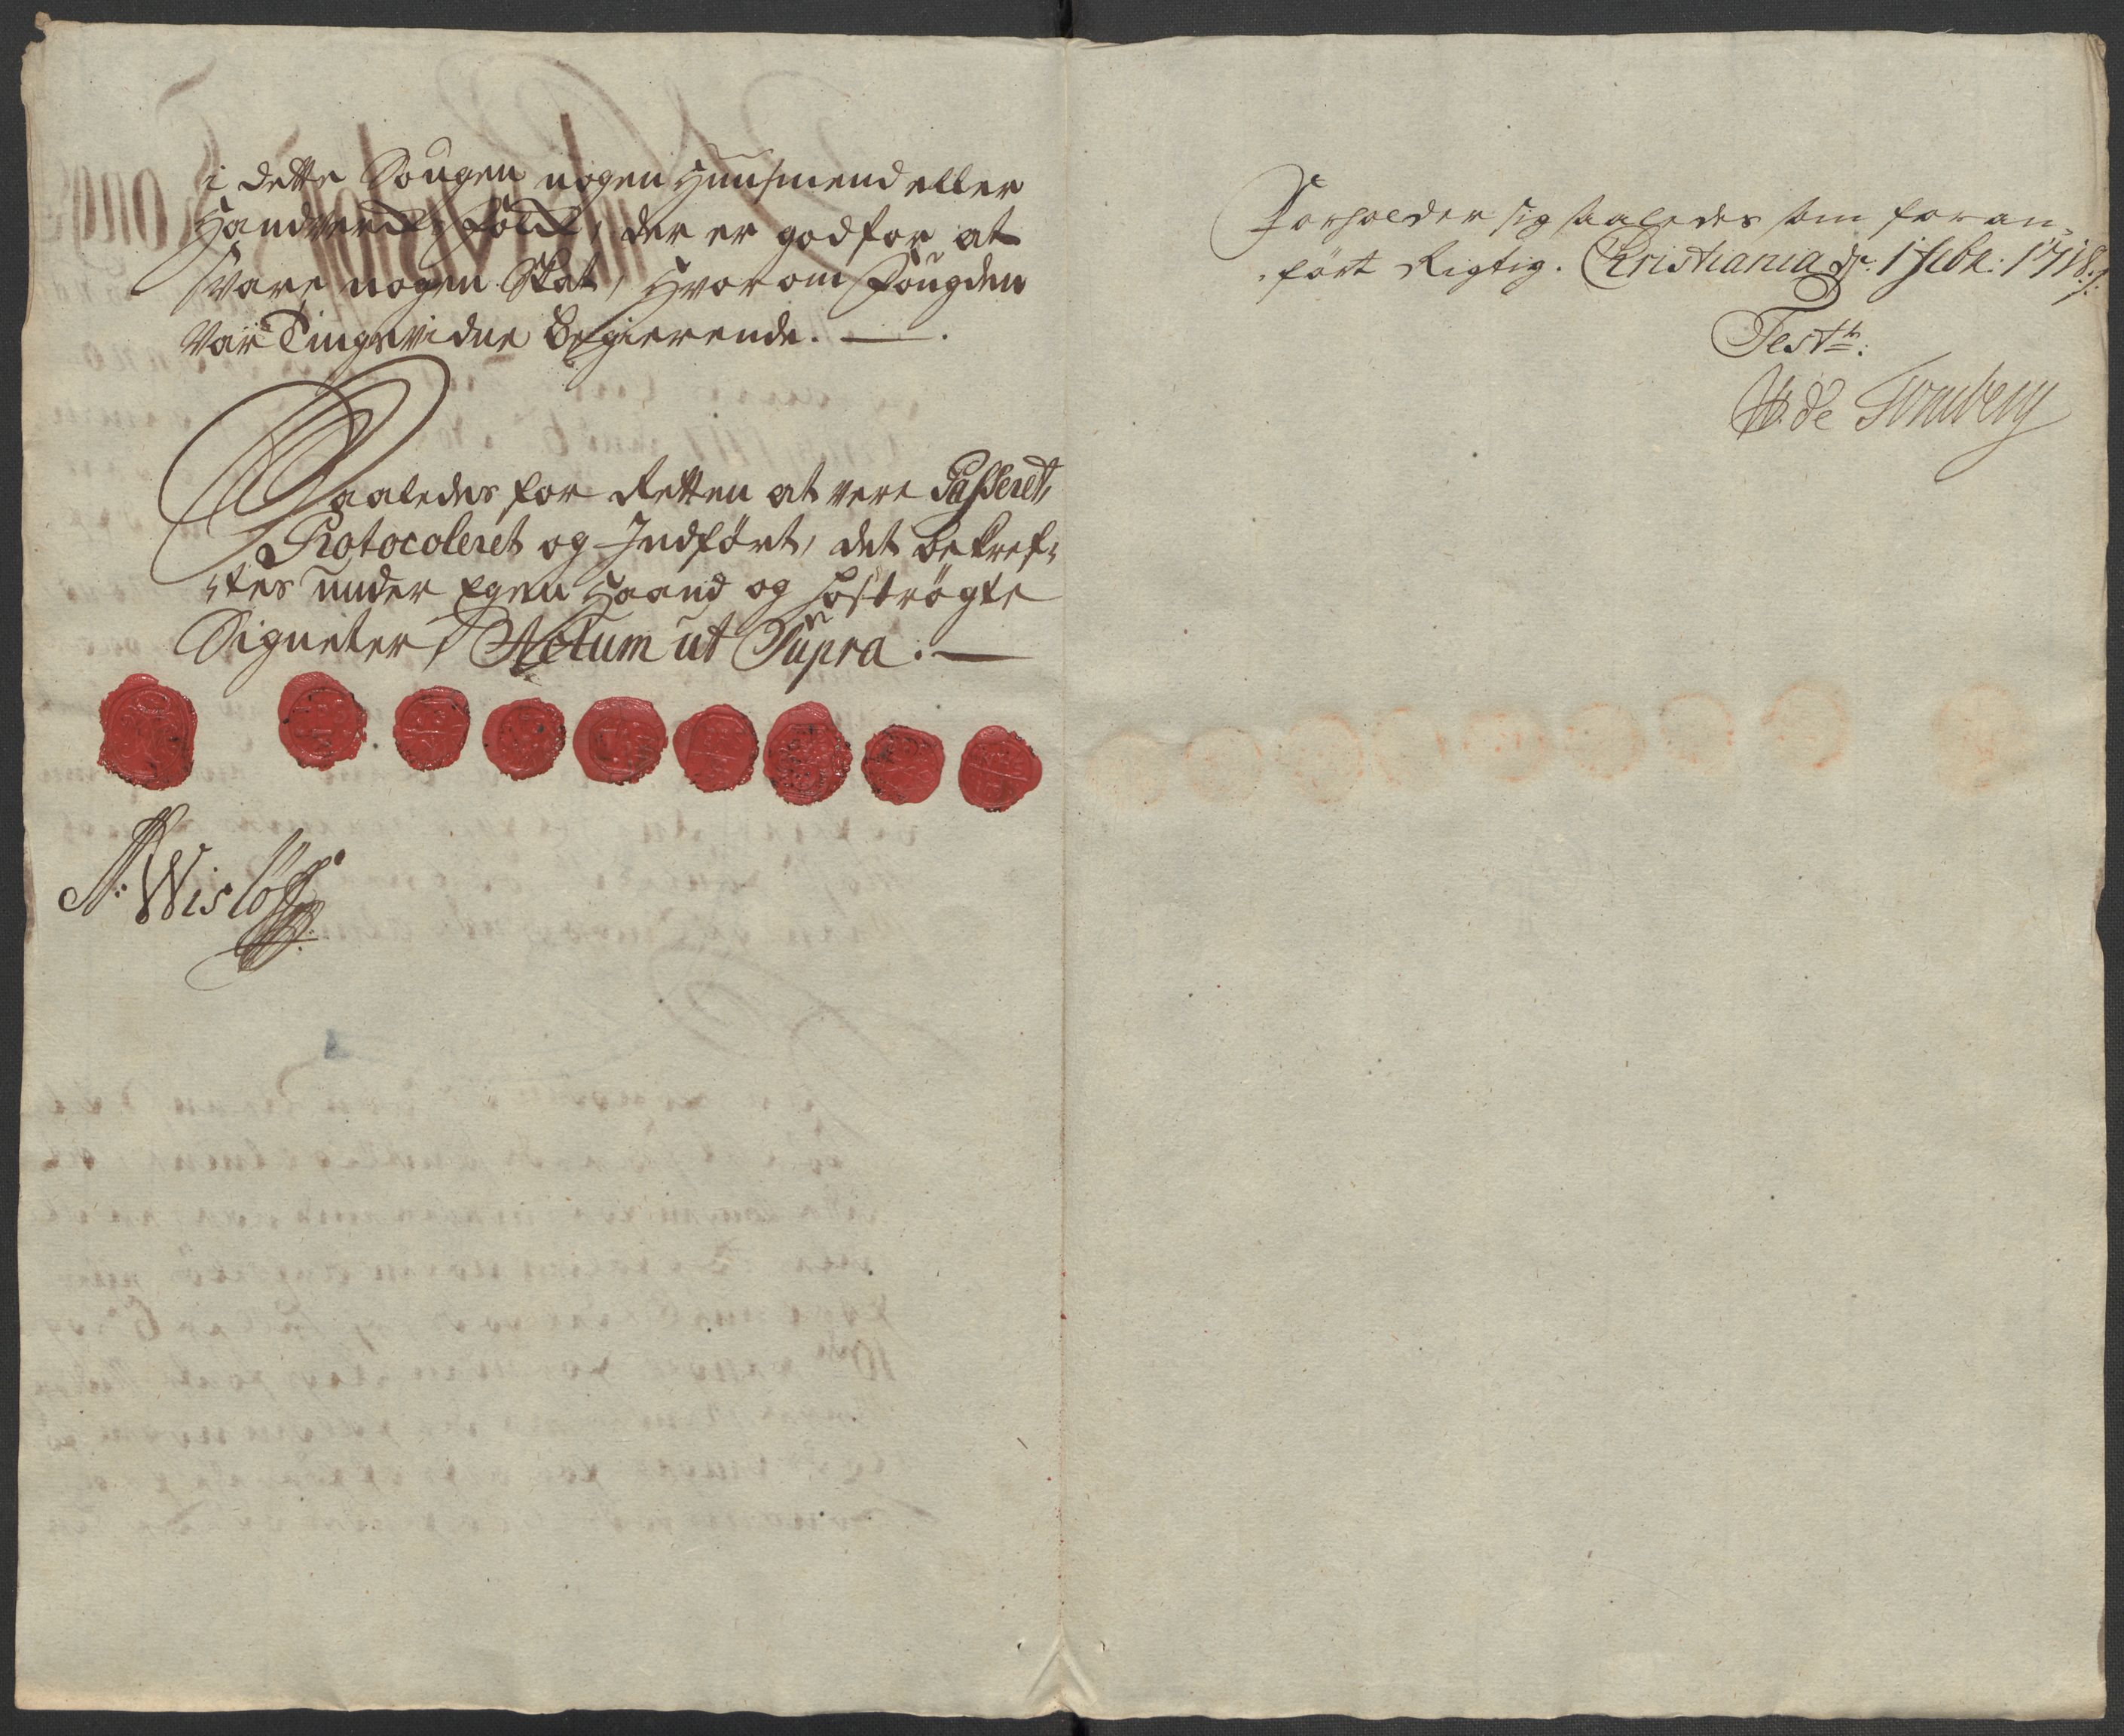 i dette Sougen nogen Huusmend eller
Handverks folk, der er god for at
Svare nogen Skat, Hvorom Fougden
var Tingsvidne Begierende. —.
Saaledes for Retten at vere Passeret,
Protocoleret og Indført, det bekref-
-tes under Egen Haand og hoströgte
Signeter, Actum ut Supra. —
A: Wislöff
Forholder sig saaledes som foran-
-fört Rigtig. Christiania d: 1 Febr: 1718.
Test:
de Tornberg